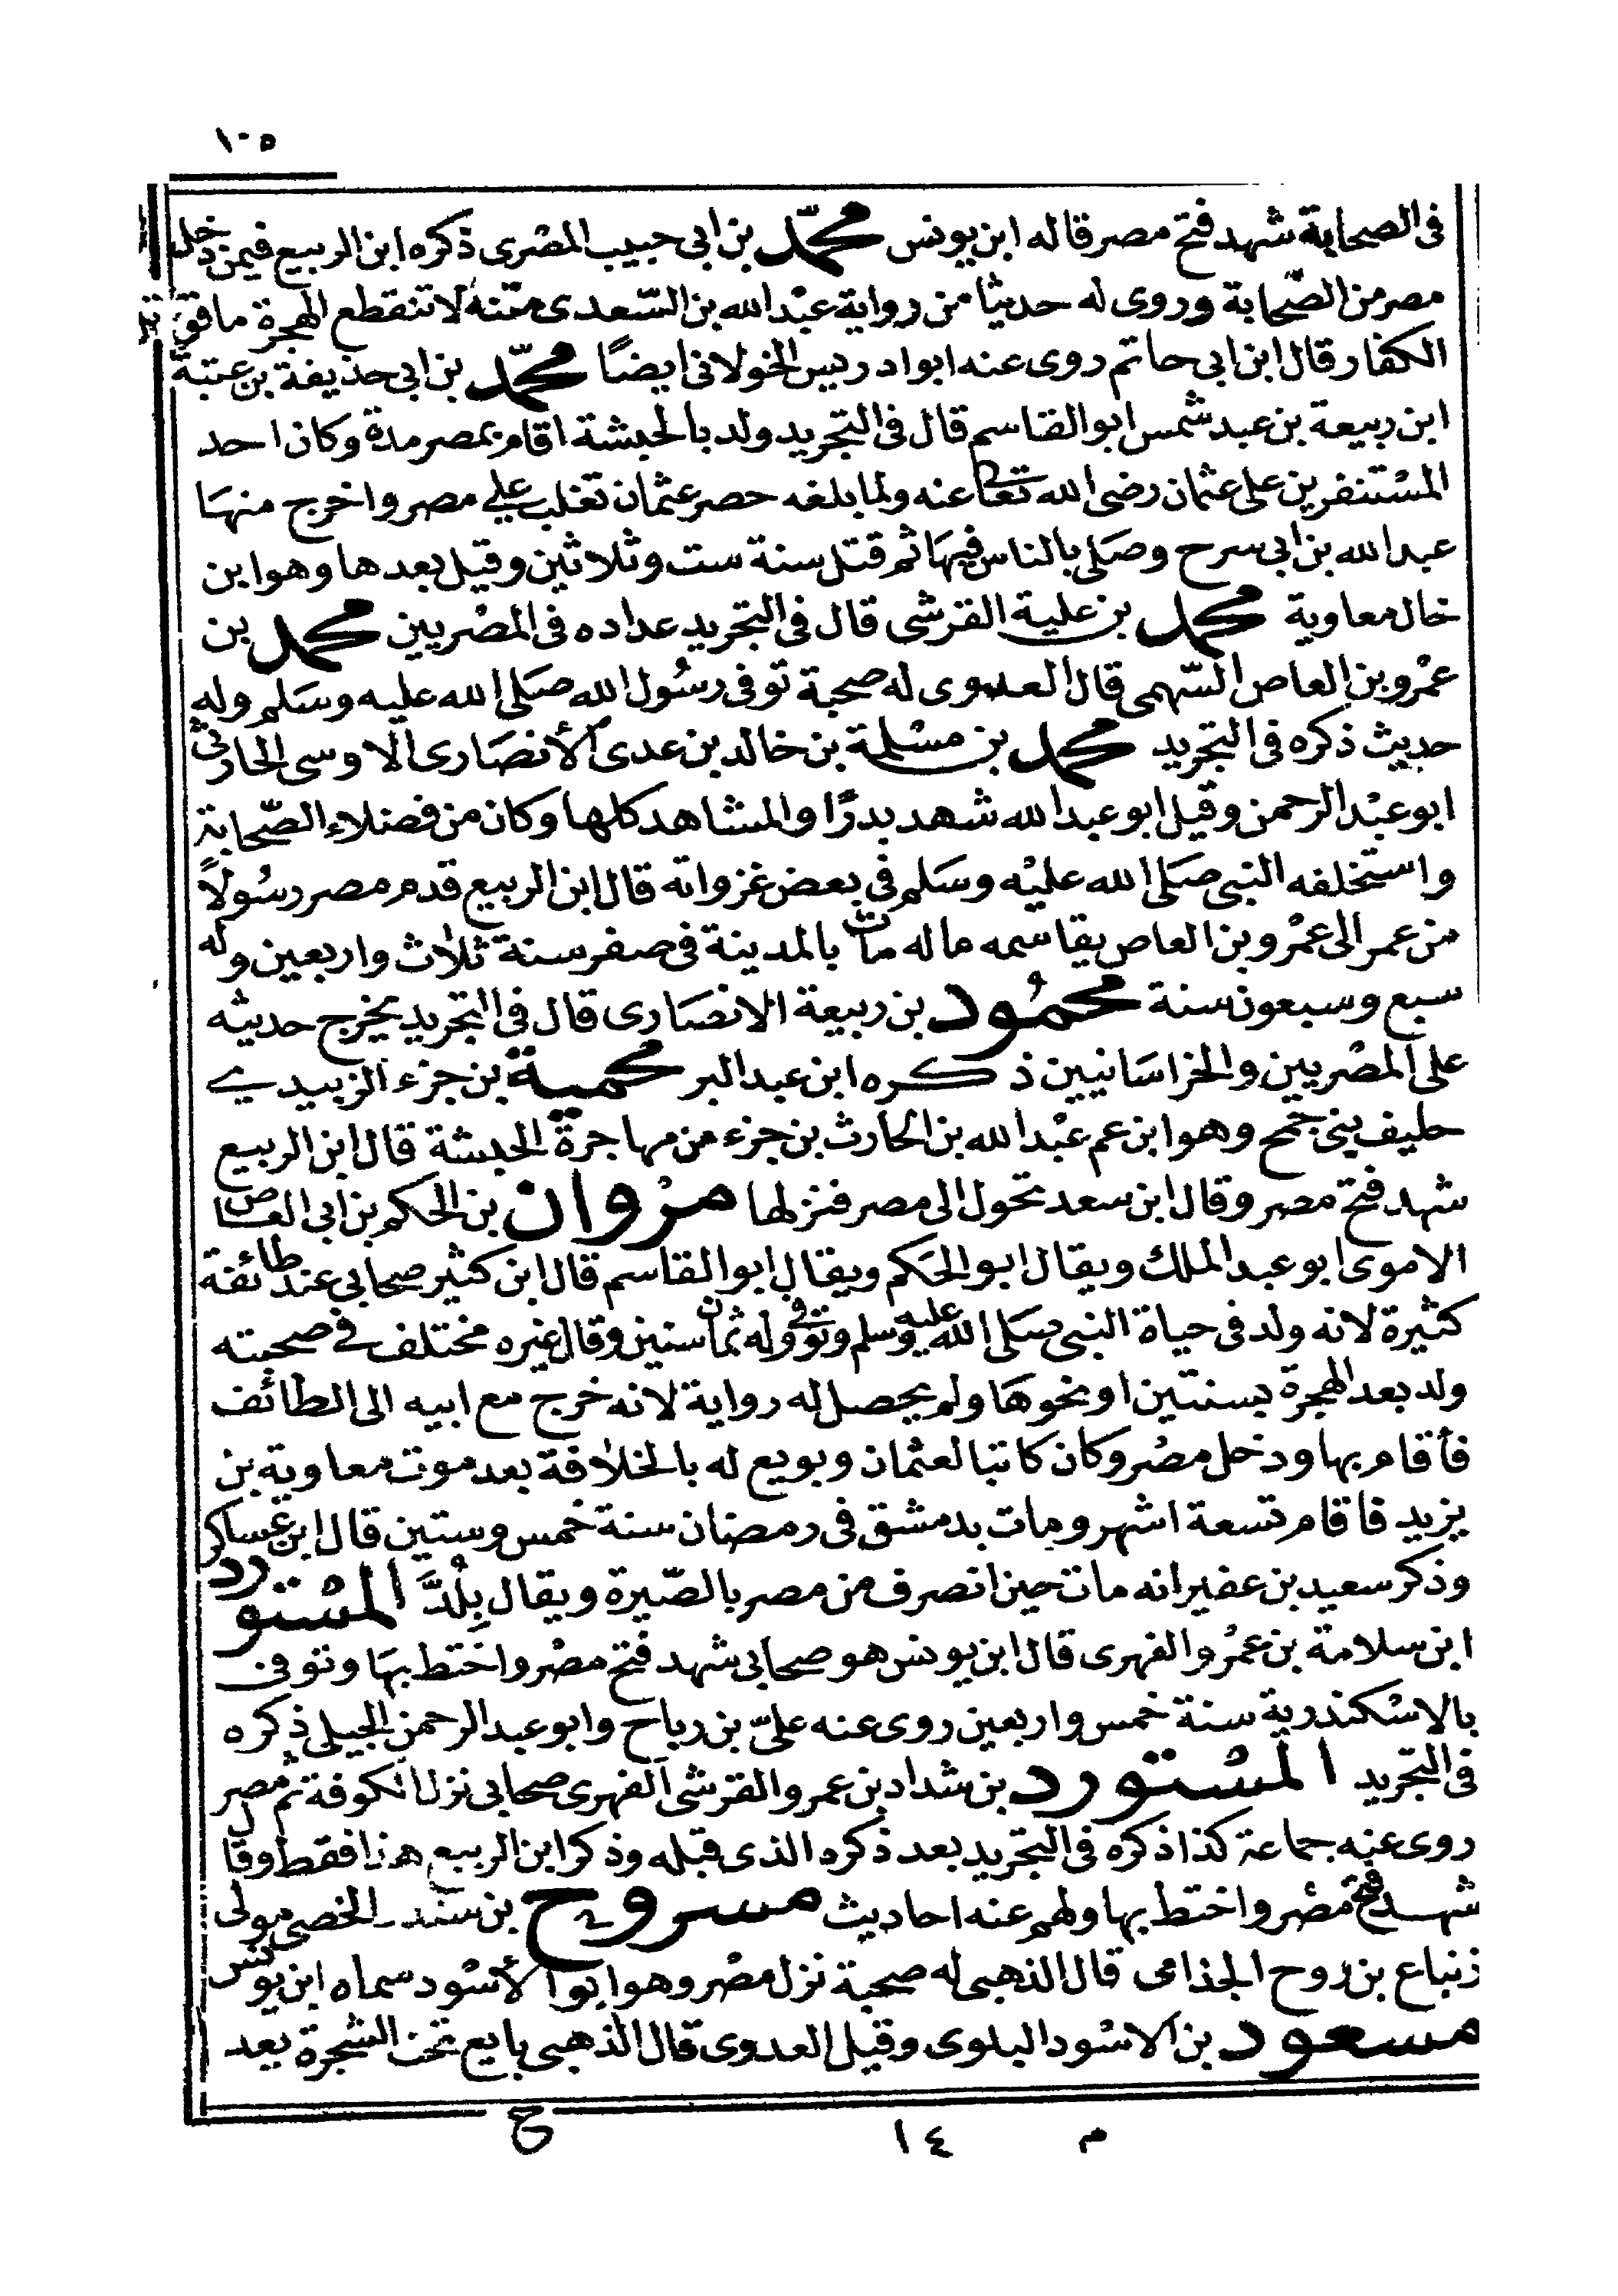 ١٠٥
فى الصحابة شهد فتح مصر قاله ابن يونس محمّد بن ابى حبيب المصْرى ذكره ابن الربيع فيمن دخل
مصر من الصّحابة وروى له حديثا من رواية عبْد الله بن السّعدى متنه لا تنقطع الهجرة ما قوتل
الكفار قال ابن ابى حاتم روى عنه ابو ادريس الخولانى ايضًا محمّد بن ابى حذيفة بن عتبة
ابن ربيعة بن عبد شمس ابو القاسم قال فى التجريد ولد بالحبشة اقام بمصر مدة وكان احد
المسْتنفرين على عثمان رضى الله تعالى عنه ولما بلغه حصر عثمان تغلب على مصر واخرج منهَا
عبد الله بن ابى سرح وصَلى بالناس فيهَا ثم قتل سنة ست وثلاثين وقيل بعدها وهو ابن
خال معاوية محمد بن علية القرشى قال فى التجريد عداده فى المصْريين محمد بن
عمْرو بن العاص السّهمى قال العدوى له صحبة توفى رسُول الله صَلى الله عليه وسَلم وله
حديث ذكره فى التجريد محمد بن مسْلمة بن خالد بن عدى الأنصَارى الاوسى الحارثى
ابو عبْد الرحمن وقيل ابو عبد الله شهد بدرًا والمشاهد كلها وكان من فضلاء الصّحابة
واستخلفه النبى صَلى الله عليْه وسَلم فى بعض غزواته قال ابن الربيع قدم مصر رسُولاً
من عمر الى عمْرو بن العاص يقاسمه ماله مات بالمدينة فى صفر سنة ثلاث واربعين وله
سبع وسبعون سنة محمُود بن ربيعة الانصَارى قال فى التجريد يخرج حديثه
على المصْريين والخراسَانيين ذكره ابن عبد البر محمية بن جزء الزبيدي
حليف بنى جمح وهو ابن عم عبْد الله بن الحارث بن جزء من مهاجرة الحبشة قال ابن الربيع
شهد فتح مصر وقال ابن سعد تحول الى مصر فنزلها مرْوان بن الحكم بن ابى العاص
الاموى ابو عبد الملك ويقال ابو الحَكم ويقال ابو القاسم قال ابن كثير صحابى عند طائفة
كثيرة لانه ولد فى حياة النبى صَلى الله عليه وسلم وتوفى وله ثمان سنين وقال غيره مختلف فى صحبته
ولد بعد الهجرة بسنتين او نحوهَا ولم يحصل له رواية لانه خرج مع ابيه الى الطائف
فأقام بها ودخل مصْر وكان كاتبا لعثمان وبويع له بالخلافة بعد موت معاوية بن
يزيد فاقام تسعة اشهر ومات بدمشق فى رمضان سنة خمس وستين قال ابن عساكر
وذكر سعيد بن عفير انه مات حين انصرف من مصر بالصّيرة ويقال بِلُدَّ المسْتورد
ابن سلامة بن عمْرو الفهرى قال ابن يونس هو صحابى شهد فتح مصْر واختط بهَا وتوفى
بالاسْكندرية سنة خمس واربعين روى عنه علىّ بن رباح وابو عبد الرحمن الجيلى ذكره
فى التّجريد المسْتورد بن شداد بن عمرو القرشى الفهرى صحابى نزل الكوفة ثم مصر
روى عنه جماعة كذا ذكره فى التجريد بعد ذكره الذى قبله وذكر ابن الربيع هذا فقط وقال
شهد فتح مصْر واختط بها ولهم عنه احاديث مسروح بن سندر الخصى مولى
زنباع بن روح الجذامى قال الذهبى له صحبة نزل مصْر وهو ابو الأسْود سماه ابن يونس
مسعود بن الاسْود البلوى وقيل العدوى قال الذهبى بايع تحت الشجرة يعد
م ١٤ ح